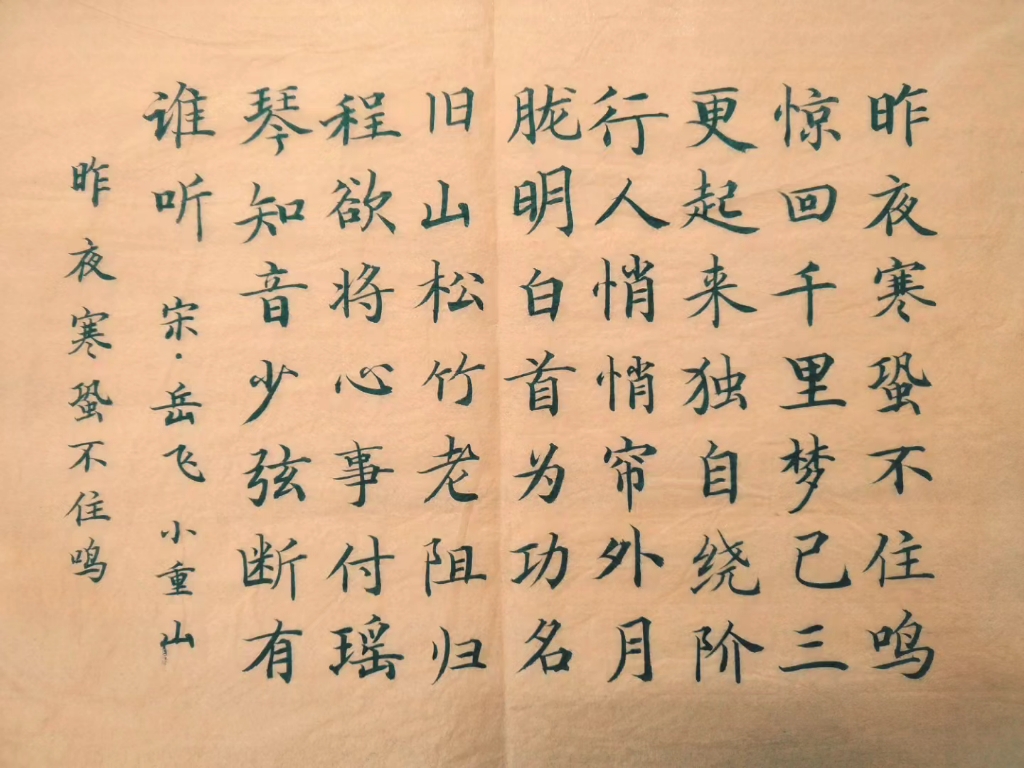 昨夜寒蛩不住鸣
惊回千里梦已三
更起来独自绕阶
行人悄悄帘外月
胧明白首为功名
旧山松竹老阻归
程欲将心事付瑶
琴知音少弦断有
谁听 宋·岳飞 小重山
昨夜寒蛩不住鸣